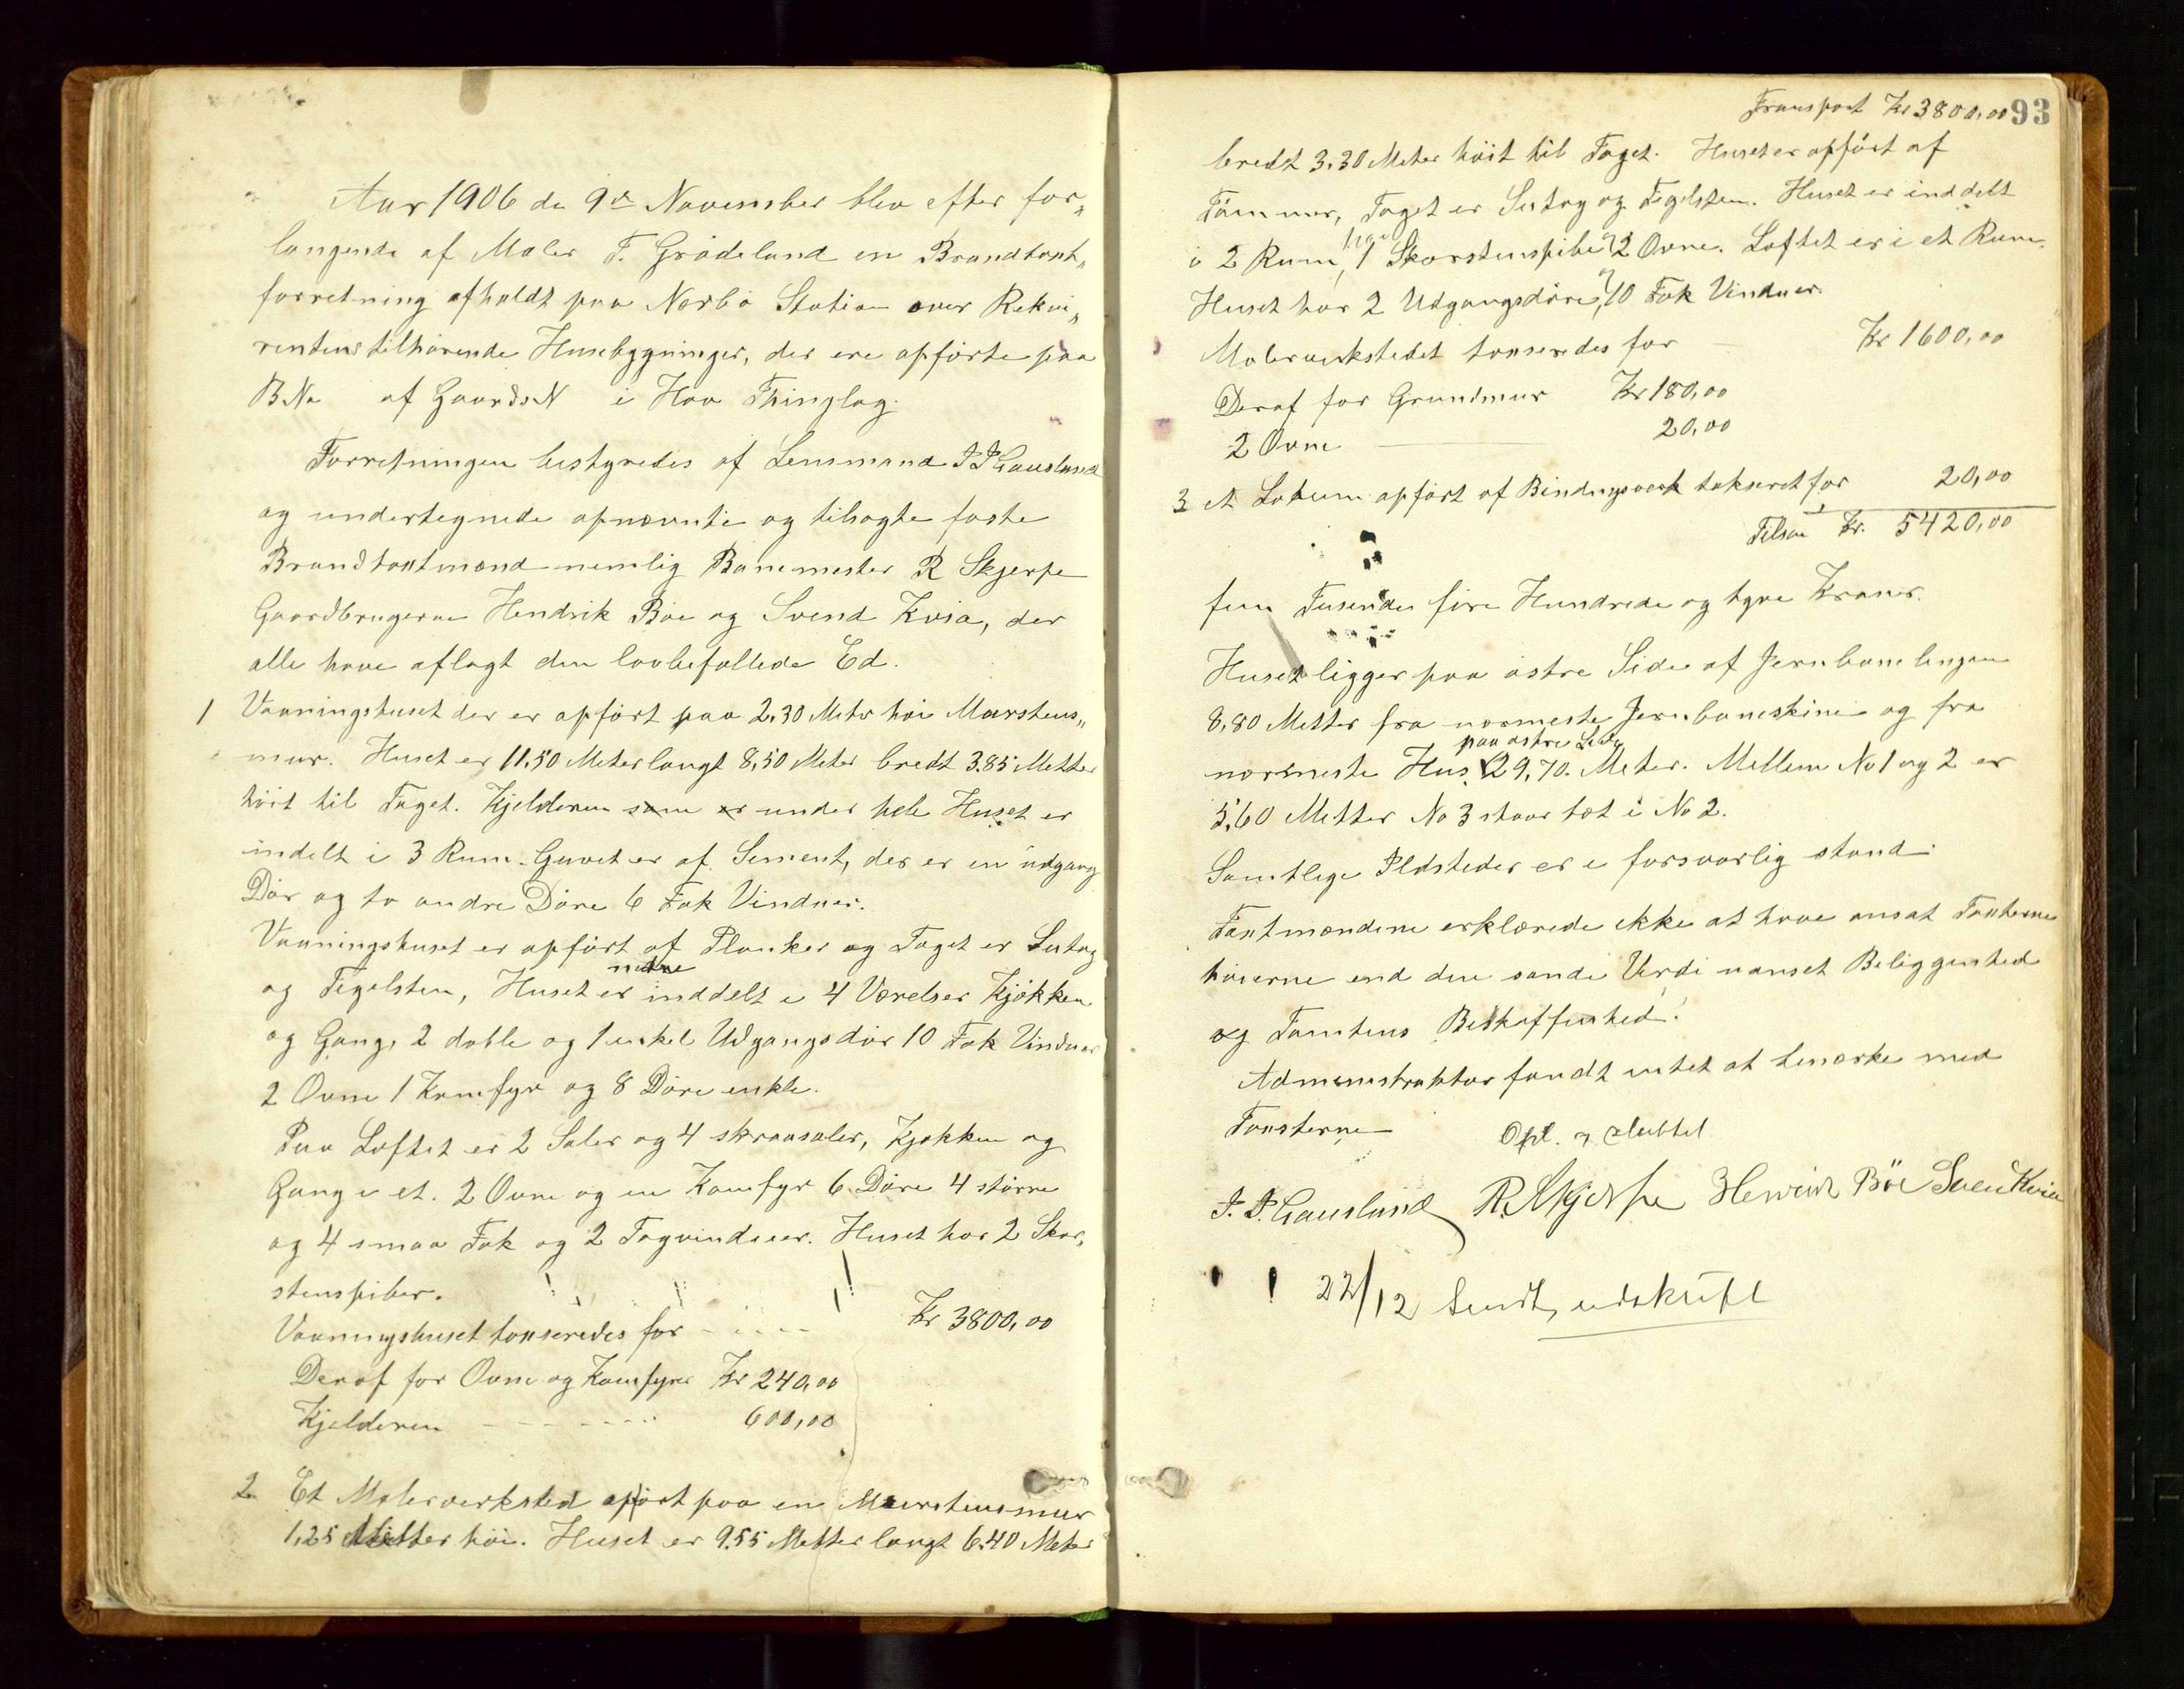 Aar 1906 de 9de November blev efter for„
langende af Maler T. Grødeland en Brandtaxt„
forretning afholdt paa Nærbø Station over Rekvi„
rentens tilhørende Husebygninger, der ere opførte paa
BNo af GaardsN i Haa Thinglag.
Forretningen bestyredes af Lensmand J P Gausland
og undertegnede opnævnte og tilsagte faste
Brandtaxtmænd nemlig Banemester R Skjerpe
Gaardbrugerne Hendrik Bøe og Svend Kvia, der
alle have aflagt den lovbefallede Ed.
1 Vaaningshuset der er opført paa 2,30 Meter høi Murstens„
mur. Huset er 11,50 Meter langt 8,50 Meter bredt 3.85 Metter
høit til Taget. Kjelderen som er under hele Huset er
indelt i 3 Rum. Guvet er af Sement, der er en udgang
Dør og to andre Døre 6 Fak Vinduer.
Vaaningshuset er opført af Planker og Taget er Sutag
og Tegelsten, Huset er nedre inddelt i 4 Værelser Kjøkken
og Gang, 2 doble og 1 enkel Udgangsdør 10 Fak Vinduer
2 Ovne 1 Komfyr og 8 Døre enkle.
Paa Loftet er 2 Saler og 4 skraasaler, Kjøkken og
Gang i et. 2 Ovne og en Komfyr 6 Døre 4 større
og 4 smaa Fak og 2 Tagvinduer. Huset har 2 Skor„
stenspiber.
Vaaningshuset taxseredes for Kr 3800,00
Deraf for Ovne og Komfyre Kr 240,00
Kjelderen 600,00
2 Et Malerverksted opført paa en Murstensmur
1,25 Metter høi. Huset er 9.55 Metter langt 6.40 Meter
Transport Kr 3800,00 93
bredt 3.30 Meter høit til Taget. Huset er opført af
Tømmer, Taget er Sutag og Tegelsten. Huset er inddelt
i 2 Rum, har 1 Skorstenspibe og 2 Ovne. Loftet er i et Rum.
Huset har 2 Udgangsdøre, og 10 Fak Vinduer.
Malerverkstedet taxseredes for Kr 1600,00
Deraf for Grundmur Kr 180,00
2 Ovne 20,00
3 et Lokum opført af Bindingsverk takseret for 20,00
Tilsam Kr. 5420,00
fem Tusende fire Hundrede og tyve Kroner.
Huset ligger paa østre Side af Jernbanelinjen
8,80 Metter fra nærmeste Jernbaneskine og fra
nærmeste Hus paa østre Side 29,70. Meter. Mellem No 1 og 2 er
5,60 Metter No 3 staar tæt i No 2.
Samtlige Ildsteder er i forsvarlig stand.
Taxtmændene erklærede ikke at have ansat Taxterne
høierne end den sande Verdi uanset Beliggenhed
og Tomtens Beskaffenhed.
Administraktor fandt intet at bemærke med
Taxsterne Opl. og vedtat
J. P. Gausland R. Skjerpe Henrik Böe Svend Kvia
22/12 Sendt, udskrift